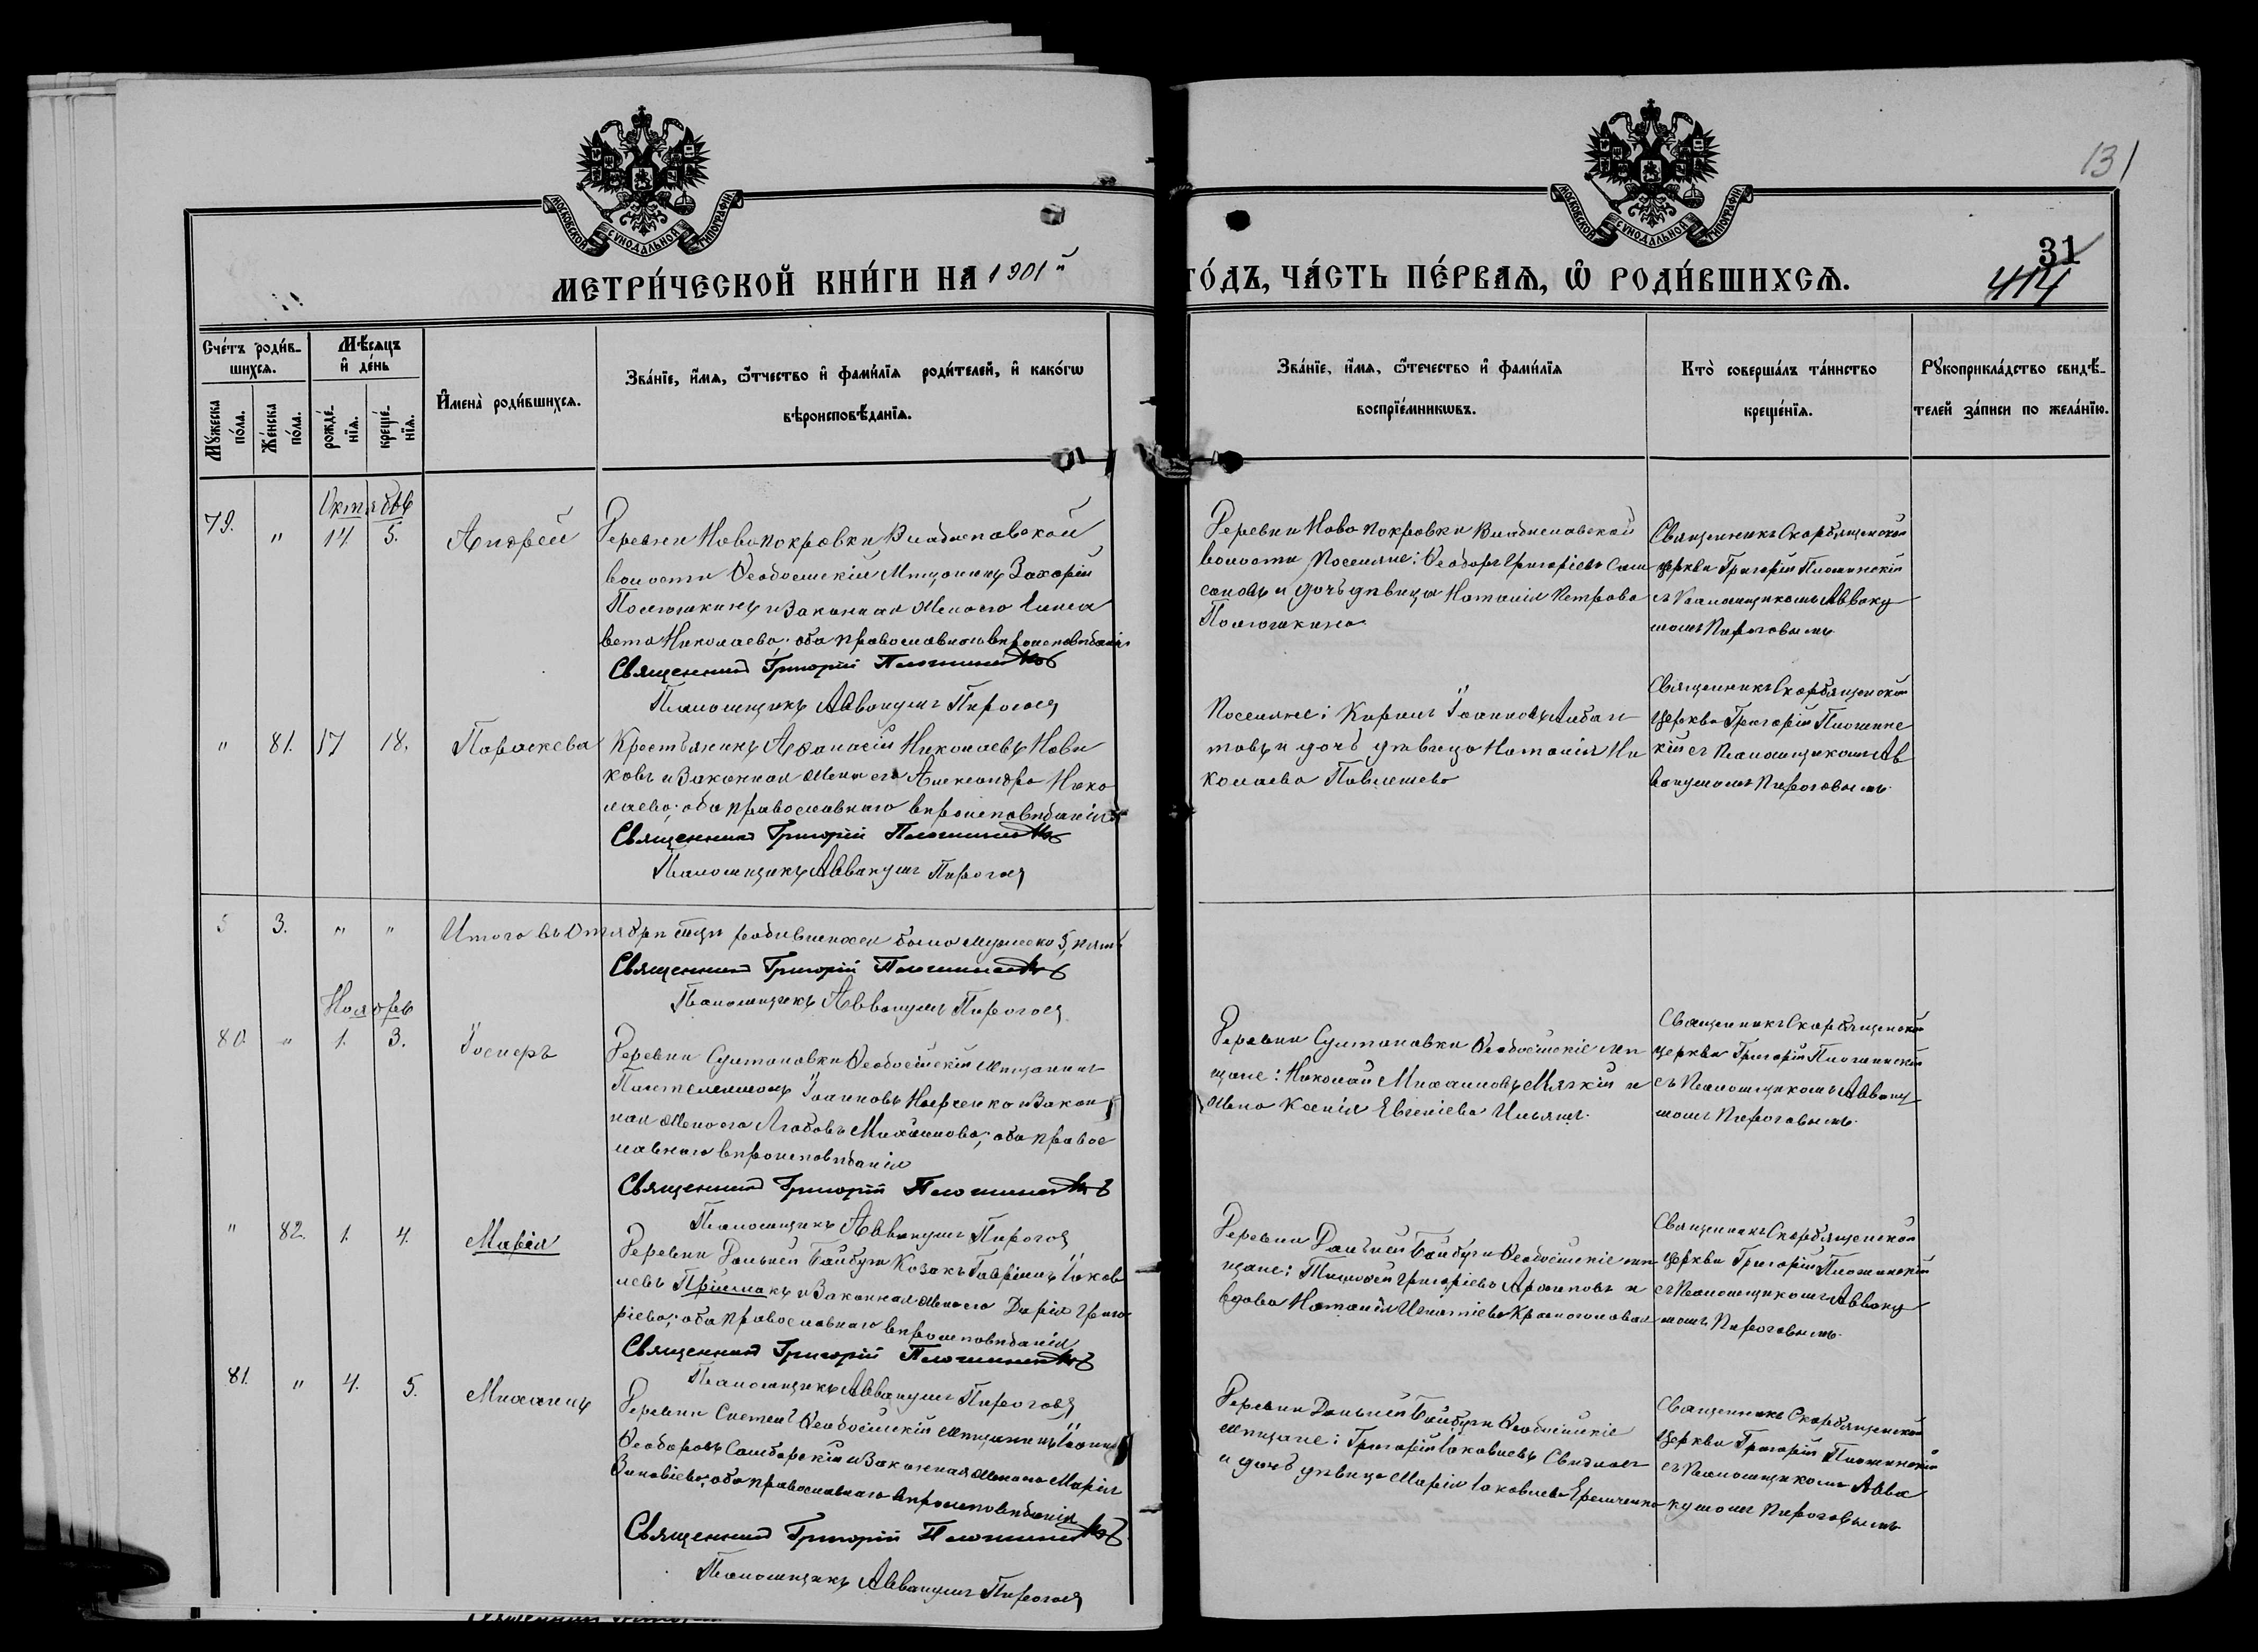 131
МОСКОВСКОЙ СѴНОДАЛЬНОЙ ТИПОГРАФІИ
МОСКОВСКОЙ СѴНОДАЛЬНОЙ ТИПОГРАФІИ
31
414
МЕТРИ́ЧЕСКОЙ КНИ́ГИ НА 1901й ГО́ДЪ, ЧА́СТЬ ПЕ́РВАѦ, Ѡ РОДИ́ВШИХСѦ.
Сче́тъ роди́в-
шихсѧ.
Мꙋжеска
по́ла.
Же́нска
по́ла.
Мѣ́сѧцъ
и҆ де́нь
рожде́-
нїѧ.
креще́-
нїѧ.
И҆мена̀ роди́вшихсѧ.
Зва́нїе, и҆́мѧ, ѻ҆́тчество и҆ фами́лїѧ роди́телей, и҆ како́гѡ
вѣроисповѣ́данїѧ.
Зва́нїе, и҆́мѧ, ѻ҆́течество и҆ фами́лїѧ
воспрїе́мникѡвъ.
Кто̀ соверша́лъ та́инство
креще́нїѧ.
Рꙋкоприкла́дство свидѣ́-
телей за́писи по жела́нїю.
Октябрь
79. " 14. 5. Андрей
Деревни Новопокровки Владиславской
волости Ѳеодосійскій Мѣщанинъ Захарій
Полюшкинъ и Законная Жена его Елиса
вета Николаева; оба православнаго вѣроисповѣданія
Священникъ Григорій
Псаломщикъ Аввакумъ Пироговъ
Деревни Ново покровки Владиславской
волости Поселяне: Ѳеодоръ Григорьевъ Сам
соновъ и дочь дѣвица Наталія Петрова
Полюшкина
Священникъ Скорбященской
церкви Григорій
съ Псаломщикомъ Авваку
момъ Пироговымъ.
" 81. 17 18. Параскева
Крестьянинъ Аѳанасій Николаевъ Нови
ковъ и Законная Жена его Александра Нико
лаева; оба православнаго вѣроисповѣданія
Священникъ Григорій
Псаломщикъ Аввакумъ Пироговъ
Поселяне: Кирилъ Іоанновъ
и дочь дѣвица Наталія Ни
колаева
Священникъ Скорбященской
Церкви Григорій
съ Псаломщикомъ Ав
вакумомъ Пироговымъ.
5 3. " " Итого въ Октябрѣ мцѣ родившихся было мужеска 5, пять
Священникъ Григорій
Псаломщикъ Аввакумъ Пироговъ
Ноябрь
80. " 1. 3.
Деревни Султановки Ѳеодосійскій мѣщанинъ
Пантелеимонъ Іоанновъ и Закон
ная Жена его Любовь Михаилова; оба правос
лавнаго вѣроисповѣданія
Священникъ Григорій
Псаломщикъ Аввакумъ Пироговъ
Деревни Султановки Ѳеодосійскіе мѣ
щане: Николай Михаиловъ Мягкій и
Жена Ксенія Евгеніева
Священникъ Скорбященской
церкви Григорій
съ Псаломщикомъ Авваку
момъ Пироговымъ.
" 82. 1. 4. Марія
Деревни Дальней Байбуги Козакъ Гавріилъ Іаков
левъ Пріймакъ и Законная Жена его Дарія Григо
ріева; оба православнаго вѣроисповѣданія
Священникъ Григорій
Псаломщикъ Аввакумъ Пироговъ
Деревни Дальней Байбуги Ѳеодосійскіе мѣ
щане: Тимоѳей Григоріевъ и
вдова Наталія Игнатіева
Священникъ Скорбященской
Церкви Григорій
съ Псаломщикомъ Авваку
момъ Пироговымъ.
81. " 4. 5. Михаилъ
Деревни Ѳеодосійскій Мѣщанинъ Іоаннъ
Ѳеодоровъ Самборскій и Законная Жена его Марія
Зиновіева; оба православнаго вѣроисповѣданія
Священникъ Григорій
Псаломщикъ Аввакумъ Пироговъ
Деревни Дальней Байбуги Ѳеодосійскіе
мѣщане: Григорій Іаковлевъ
и дочь дѣвица Марія Іаковлева Еременко
Священникъ Скорбященской
Церкви Григорій
съ Псаломщикомъ Авва
кумомъ Пироговымъ